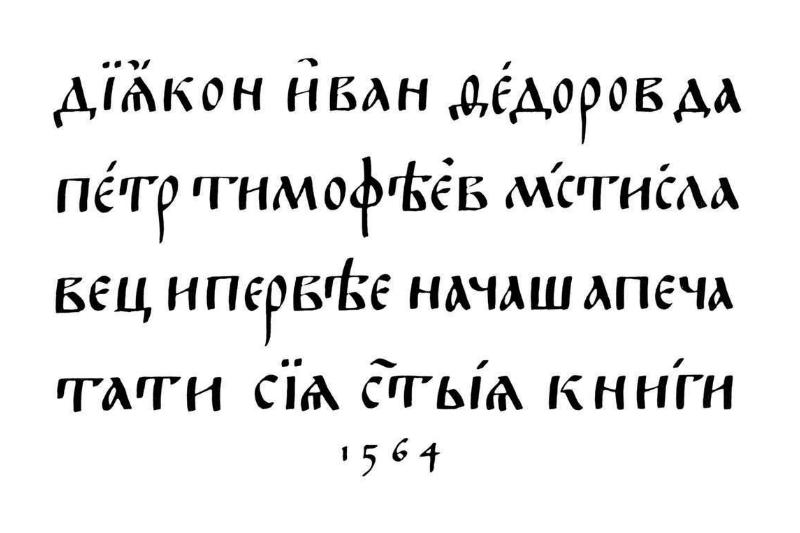 дїѧ҆́кон и҆ван ѳе́доров да
пе́тр тимофѣе҆в мс́тисла
вец ипервѣе начаша печа
тати сїѧ ст҃ыѧ́ кни́ги
1564